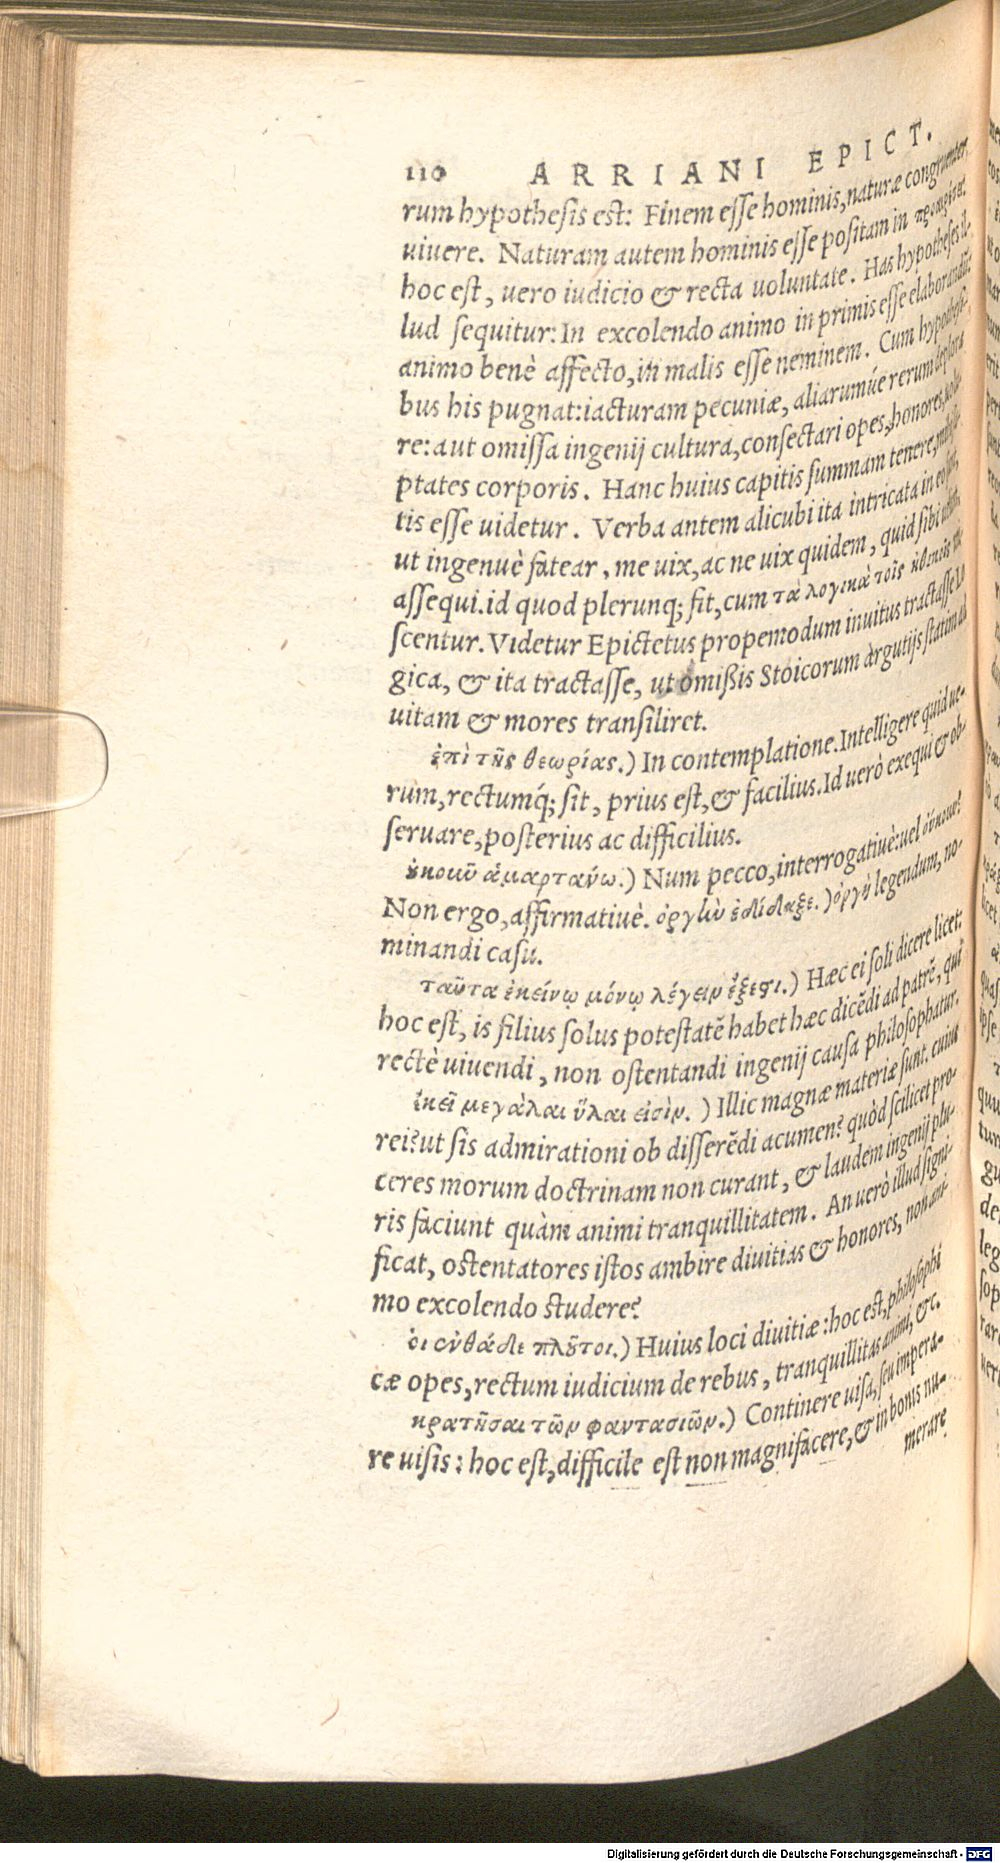 110 ARRIANI EPICT.
rum hypothesis est: Finem esse hominis, naturæ congruenter
uiuere. Naturam autem hominis esse positam in προαιρέσει
hoc est, uero iudicio & recta uoluntate. Has hypotheses il-
lud sequitur: In excolendo animo in primis esse elaborandũ:
animo benè affecto, in malis esse neminem. Cum hypothesi-
bus his pugnat: iacturam pecuniæ, aliarumúe rerum deplora
re: aut omissa ingenij cultura, consectari opes, honores, uolu
ptates corporis. Hanc huius capitis summam tenere,
tis esse uidetur. Verba antem alicubi ita intricata in eo sunt,
ut ingenuè fatear, me uix, ac ne uix quidem, quid sibi uelint,
assequi. id quod plerunq; fit, cum τὰ λογικὰ τοῖς ἠθικοῖς mi
scentur. Videtur Epictetus propemodum inuitus tractasse Lo
gica, & ita tractasse, ut omißis Stoicorum argutijs statim ad
uitam & mores transiliret.
ἐπὶ τῆς θεωρίας.) In contemplatione. Intelligere quid ue-
rum, rectumq́; sit, prius est, & facilius. Id uerò exequi & ob-
seruare, posterius ac difficilius.
ἐκοιυ ἁμαρτάνω.) Num pecco, interrogatiuè: uel οὔκουν?
Non ergo, affirmatiuè. ὀργὴν ἐδίδαξε.) ὀργὴ legendum, no-
minandi casu.
ταῦτα ἐκείνῳ μόνῳ λέγειν ἔξεστι.) Hæc ei soli dicere licet:
hoc est, is filius solus potestatẽ habet hæc dicẽdi ad patrẽ, qui
rectè uiuendi, non ostentandi ingenij causa philosophatur.
ἐκεῖ μεγάλαι ὗλαι εἰσὶν.) Illic magnæ materiæ sunt. cuius
rei? ut sis admirationi ob disserẽdi acumen? quòd scilicet pro-
ceres morum doctrinam non curant, & laudem ingenij plu-
ris faciunt quàm animi tranquillitatem. An uerò illud signi-
ficat, ostentatores istos ambire diuitias & honores, non ani-
mo excolendo studere?
οἱ ἐνθάδε πλοῦτοι.) Huius loci diuitiæ: hoc est, philosophi
cæ opes, rectum iudicium de rebus, tranquillitas animi, &c.
κρατῆσαι τῶν φαντασιῶν.) Continere uisa, seu impera-
re uisis: hoc est, difficile est non magnifacere, & in bonis nu-
merare
Digitalisierung gefördert durch die Deutsche Forschungsgemeinschaft - DFG